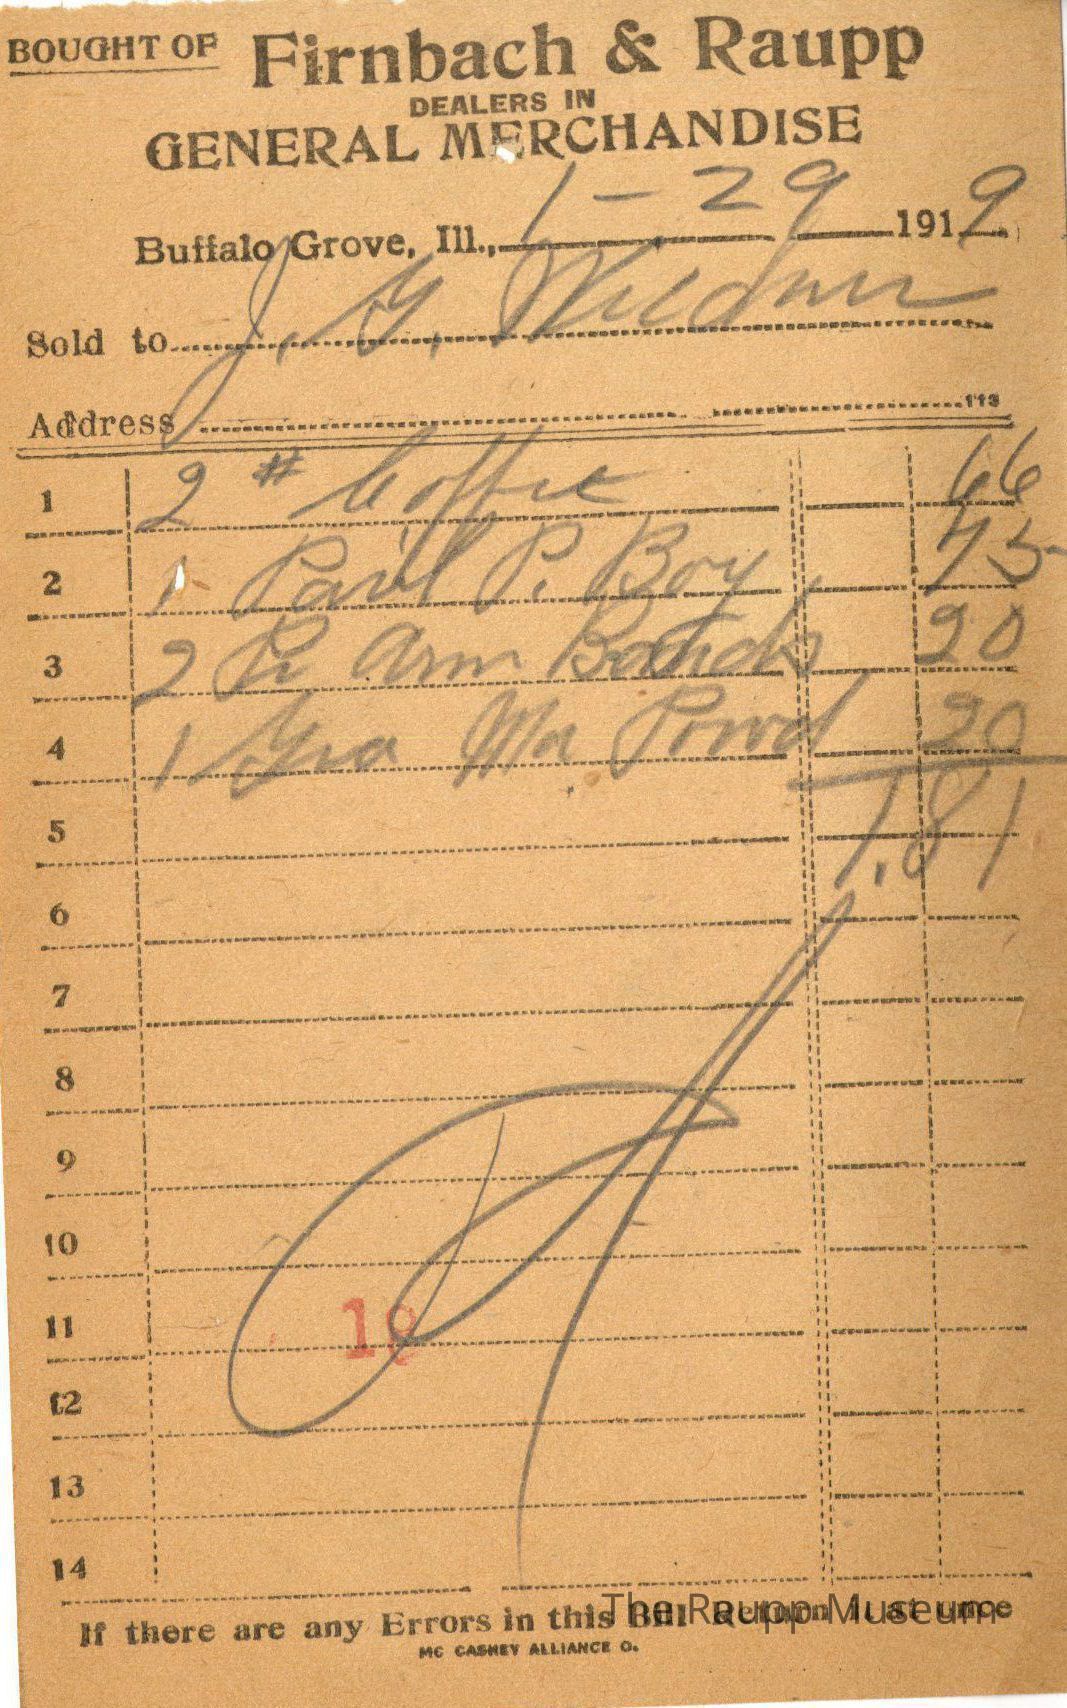 BOUGHT OF Firnbach & Raupp
DEALERS IN
GENERAL MERCHANDISE
Buffalo Grove, Ill., 1-29 1919.
Sold to J. G. Weidner
Address 113
1 2 # Coffee 66
2 1 Pail P. Boy 75
3 2 Pr Arm Bands 20
4 1 Gra Ma Powd 20
1.81
5
6
7
8
9
10
11 18
12
13
14
If there are any Errors in this Bill Return it at once
The Raupp Museum
MC CASKEY ALLIANCE O.